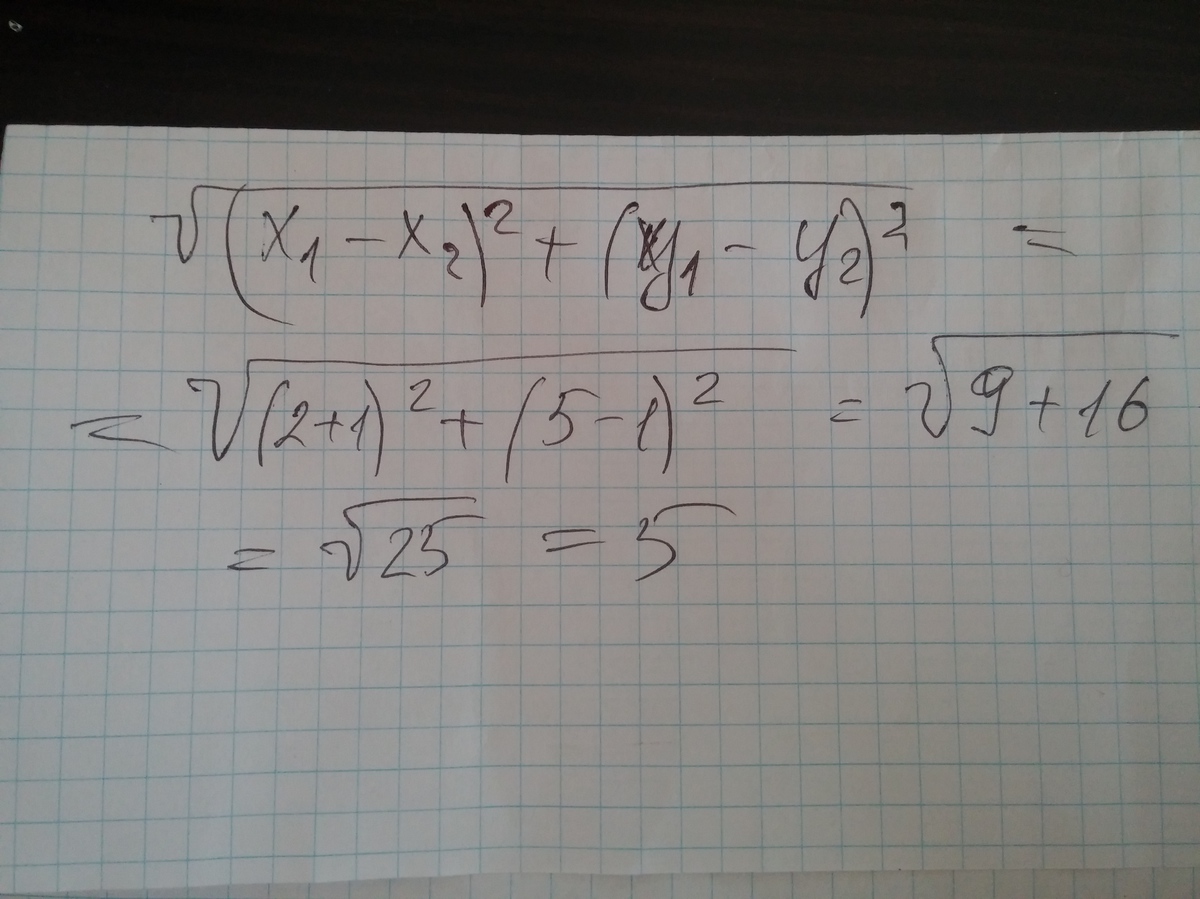 √(x₁ - x₂)² + (y₁ - y₂)² =
= √(2+1)² + (5-1)² = √9+16
= √25 = 5